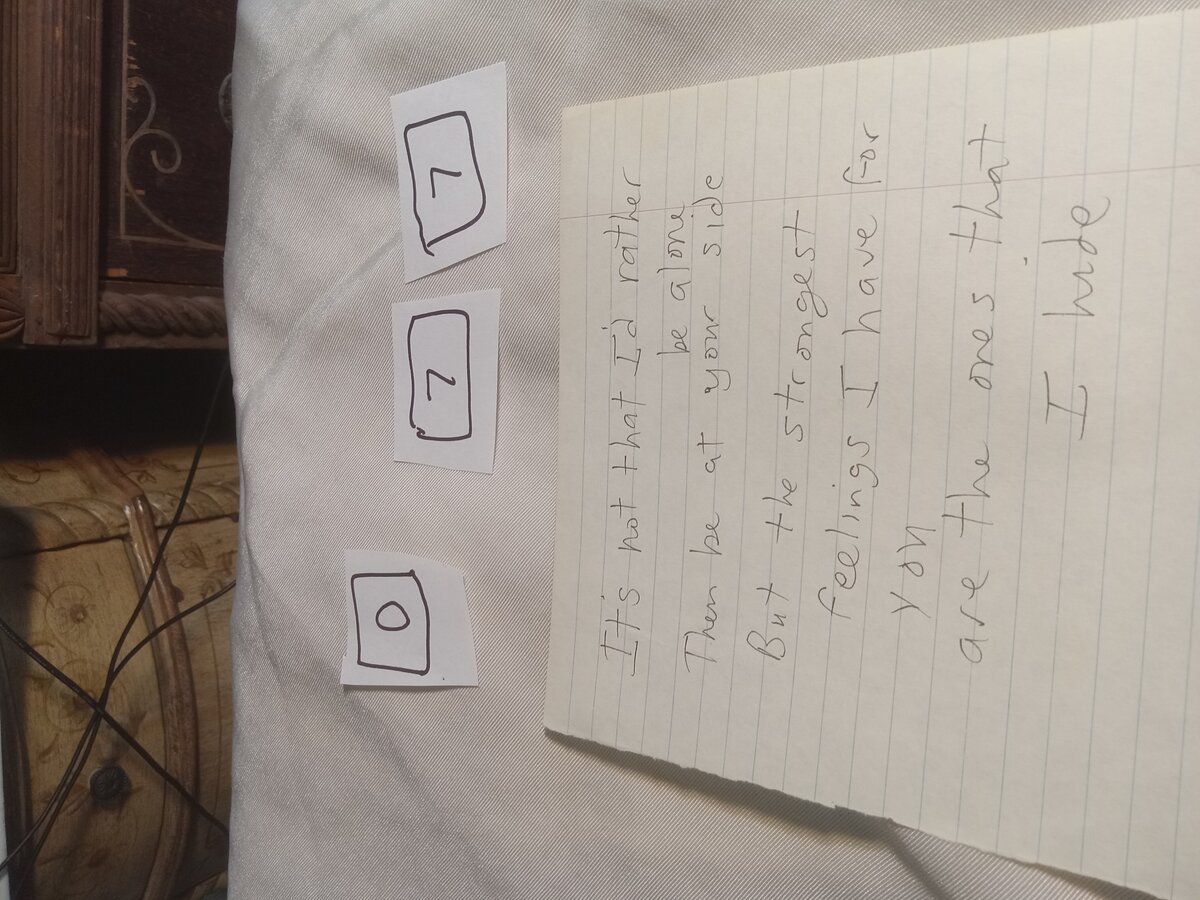 0 2 7
It's not that I'd rather
be alone
Then be at your side
But the strongest
feelings I have for
you
are the ones that
I hide